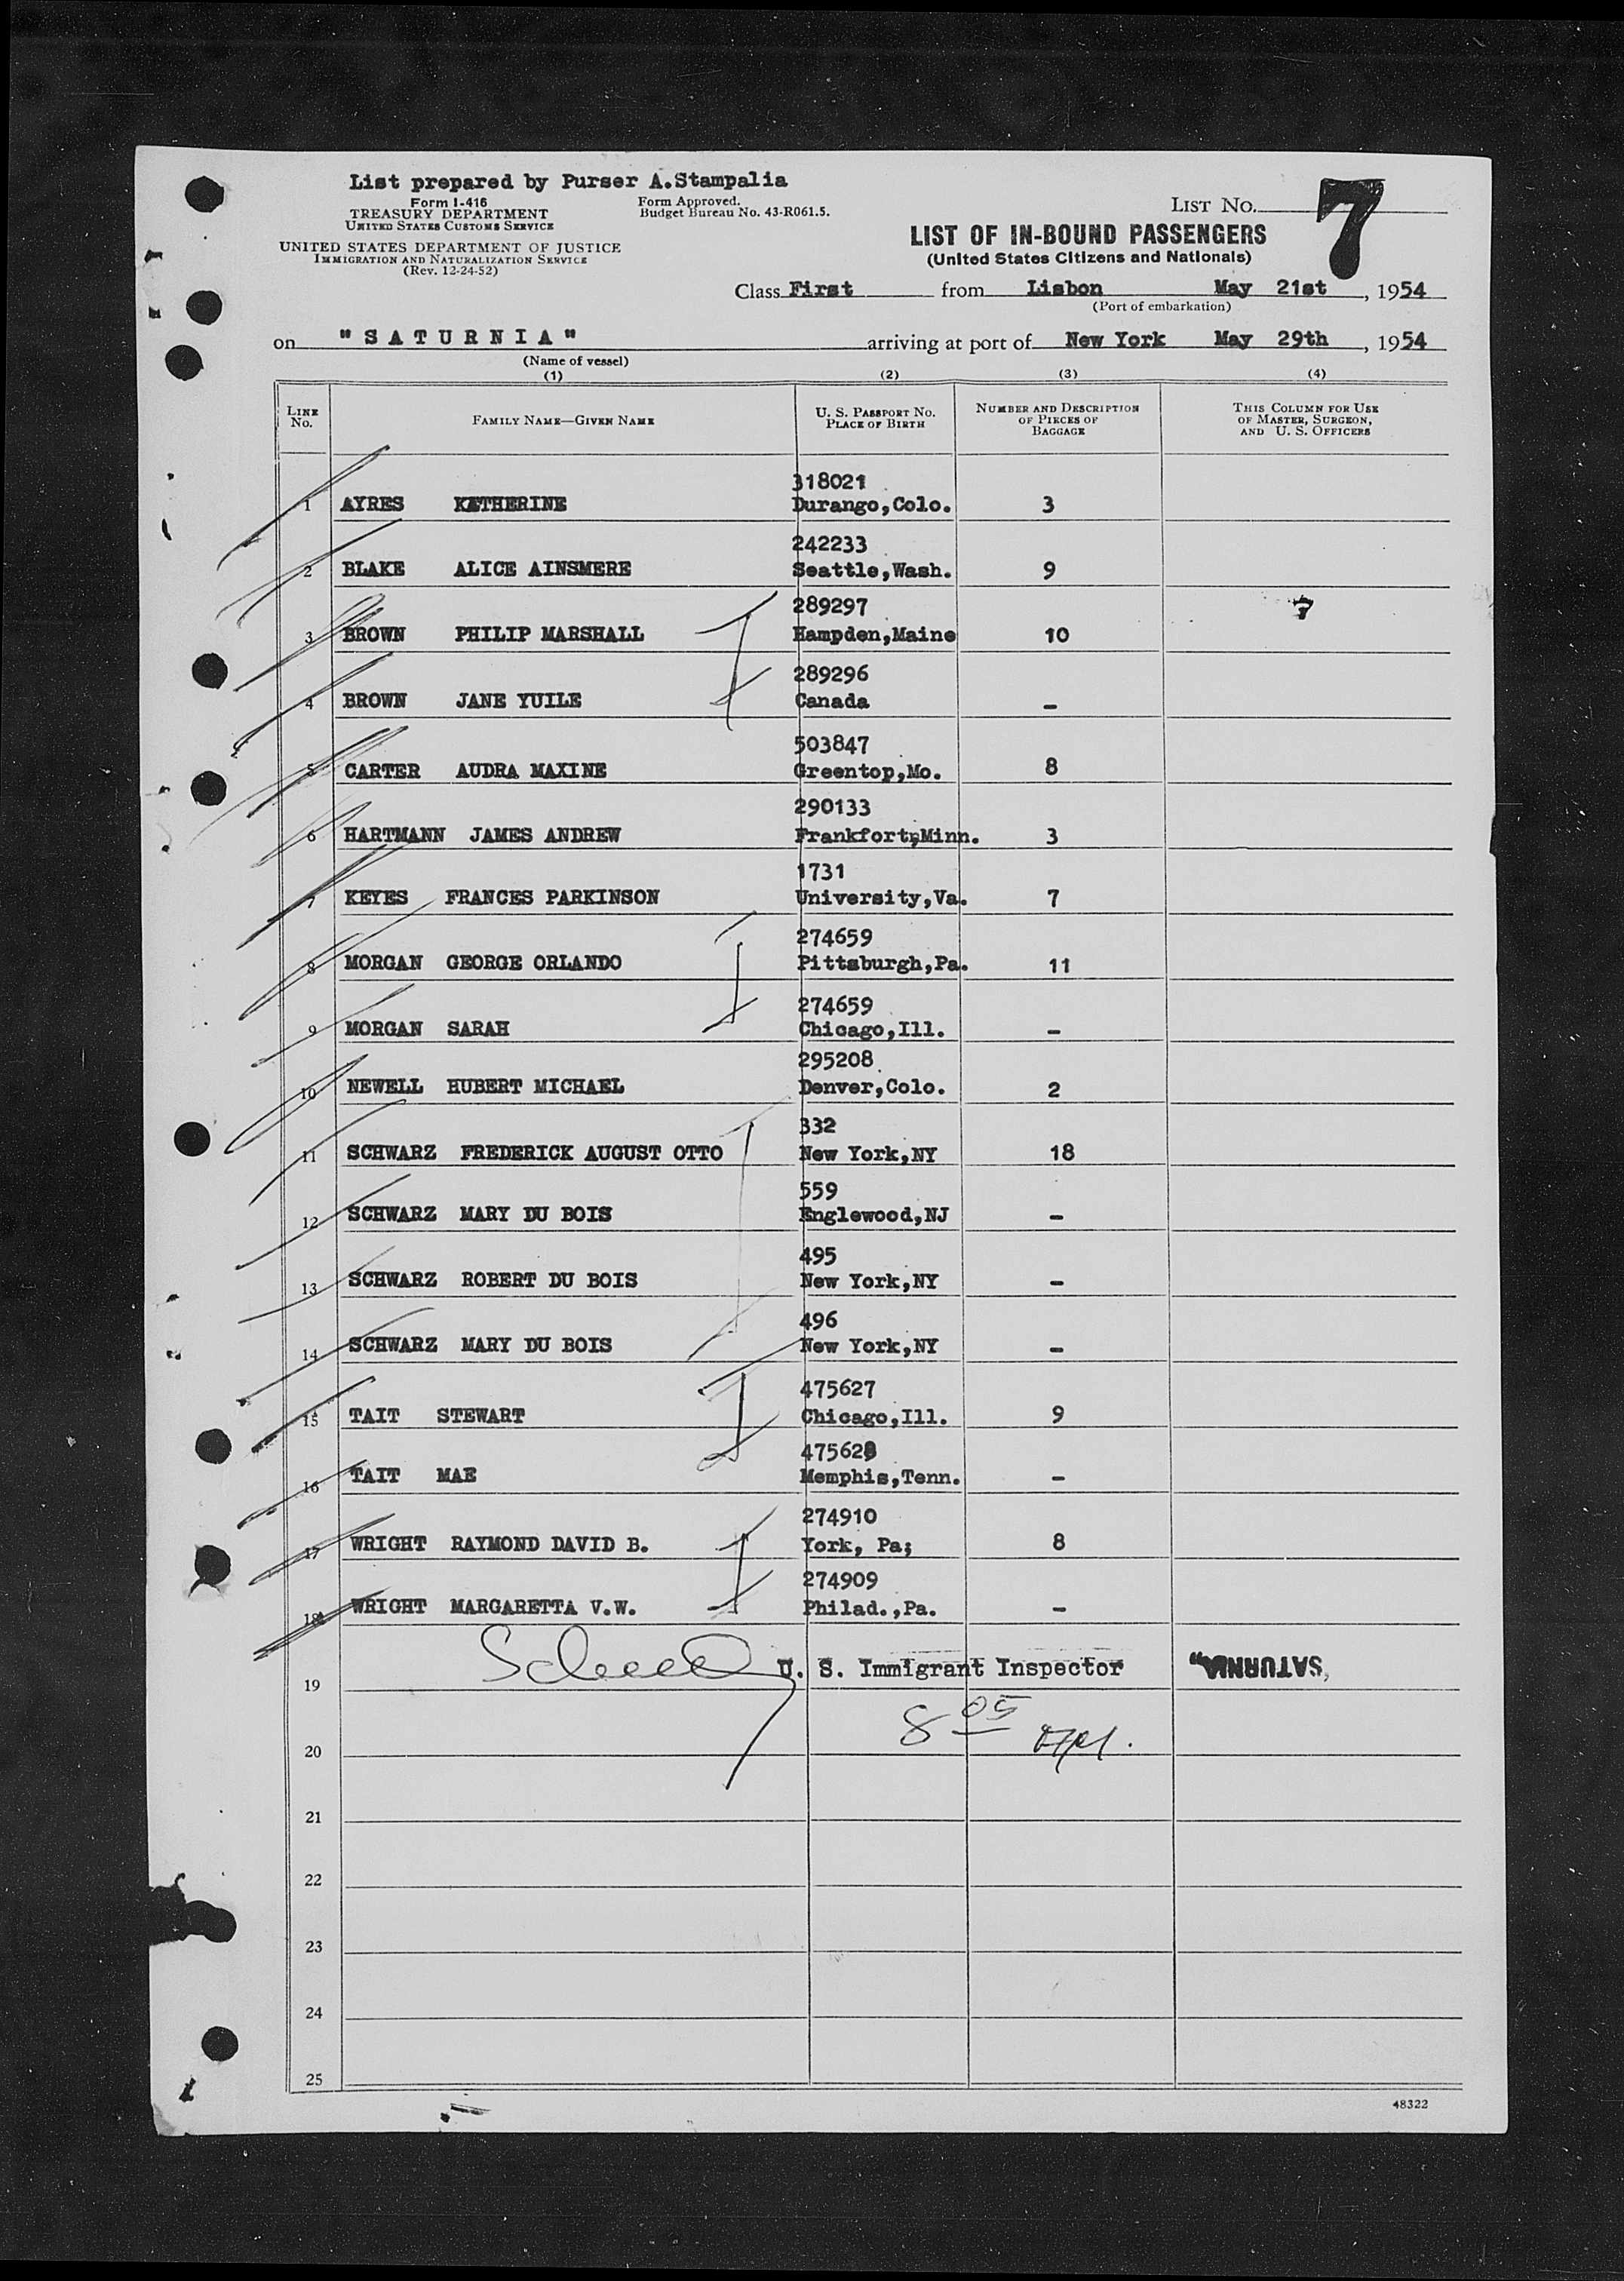 List prepared by Purser A.Stampalia
Form I-416
TREASURY DEPARTMENT
UNITED STATES CUSTOMS SERVICE
UNITED STATES DEPARTMENT OF JUSTICE
IMMIGRATION AND NATURALIZATION SERVICE
(Rev. 12-24-52)
Form Approved.
Budget Bureau No. 43-R061.5.
LIST NO. 7
LIST OF IN-BOUND PASSENGERS
(United States Citizens and Nationals)
Class First from Lisbon May 21st, 1954
(Port of embarkation)
on "SATURNIA" arriving at port of New York May 29th, 1954
(Name of vessel)
(1) (2) (3) (4)
LINE No. FAMILY NAME—GIVEN NAME U. S. PASSPORT NO. PLACE OF BIRTH NUMBER AND DESCRIPTION OF PIECES OF BAGGAGE THIS COLUMN FOR USE OF MASTER, SURGEON, AND U. S. OFFICERS
318021
1 AYRES KATHERINE Durango,Colo. 3
242233
2 BLAKE ALICE AINSMERE Seattle,Wash. 9
289297 7
3 BROWN PHILIP MARSHALL Hampden,Maine 10
289296
4 BROWN JANE YUILE Canada -
503847
5 CARTER AUDRA MAXINE Greentop,Mo. 8
290133
6 HARTMANN JAMES ANDREW Frankfort,Minn. 3
1731
7 KEYES FRANCES PARKINSON University,Va. 7
274659
8 MORGAN GEORGE ORLANDO Pittsburgh,Pa. 11
274659
9 MORGAN SARAH Chicago,Ill. -
295208
10 NEWELL HUBERT MICHAEL Denver,Colo. 2
332
11 SCHWARZ FREDERICK AUGUST OTTO New York,NY 18
559
12 SCHWARZ MARY DU BOIS Englewood,NJ -
495
13 SCHWARZ ROBERT DU BOIS New York,NY -
496
14 SCHWARZ MARY DU BOIS New York,NY -
475627
15 TAIT STEWART Chicago,Ill. 9
475628
16 TAIT MAE Memphis,Tenn. -
274910
17 WRIGHT RAYMOND DAVID B. York, Pa; 8
274909
18 WRIGHT MARGARETTA V.W. Philad.,Pa. -
19 U. S. Immigrant Inspector "SATURNIA"
8 05
20
21
22
23
24
25
48322